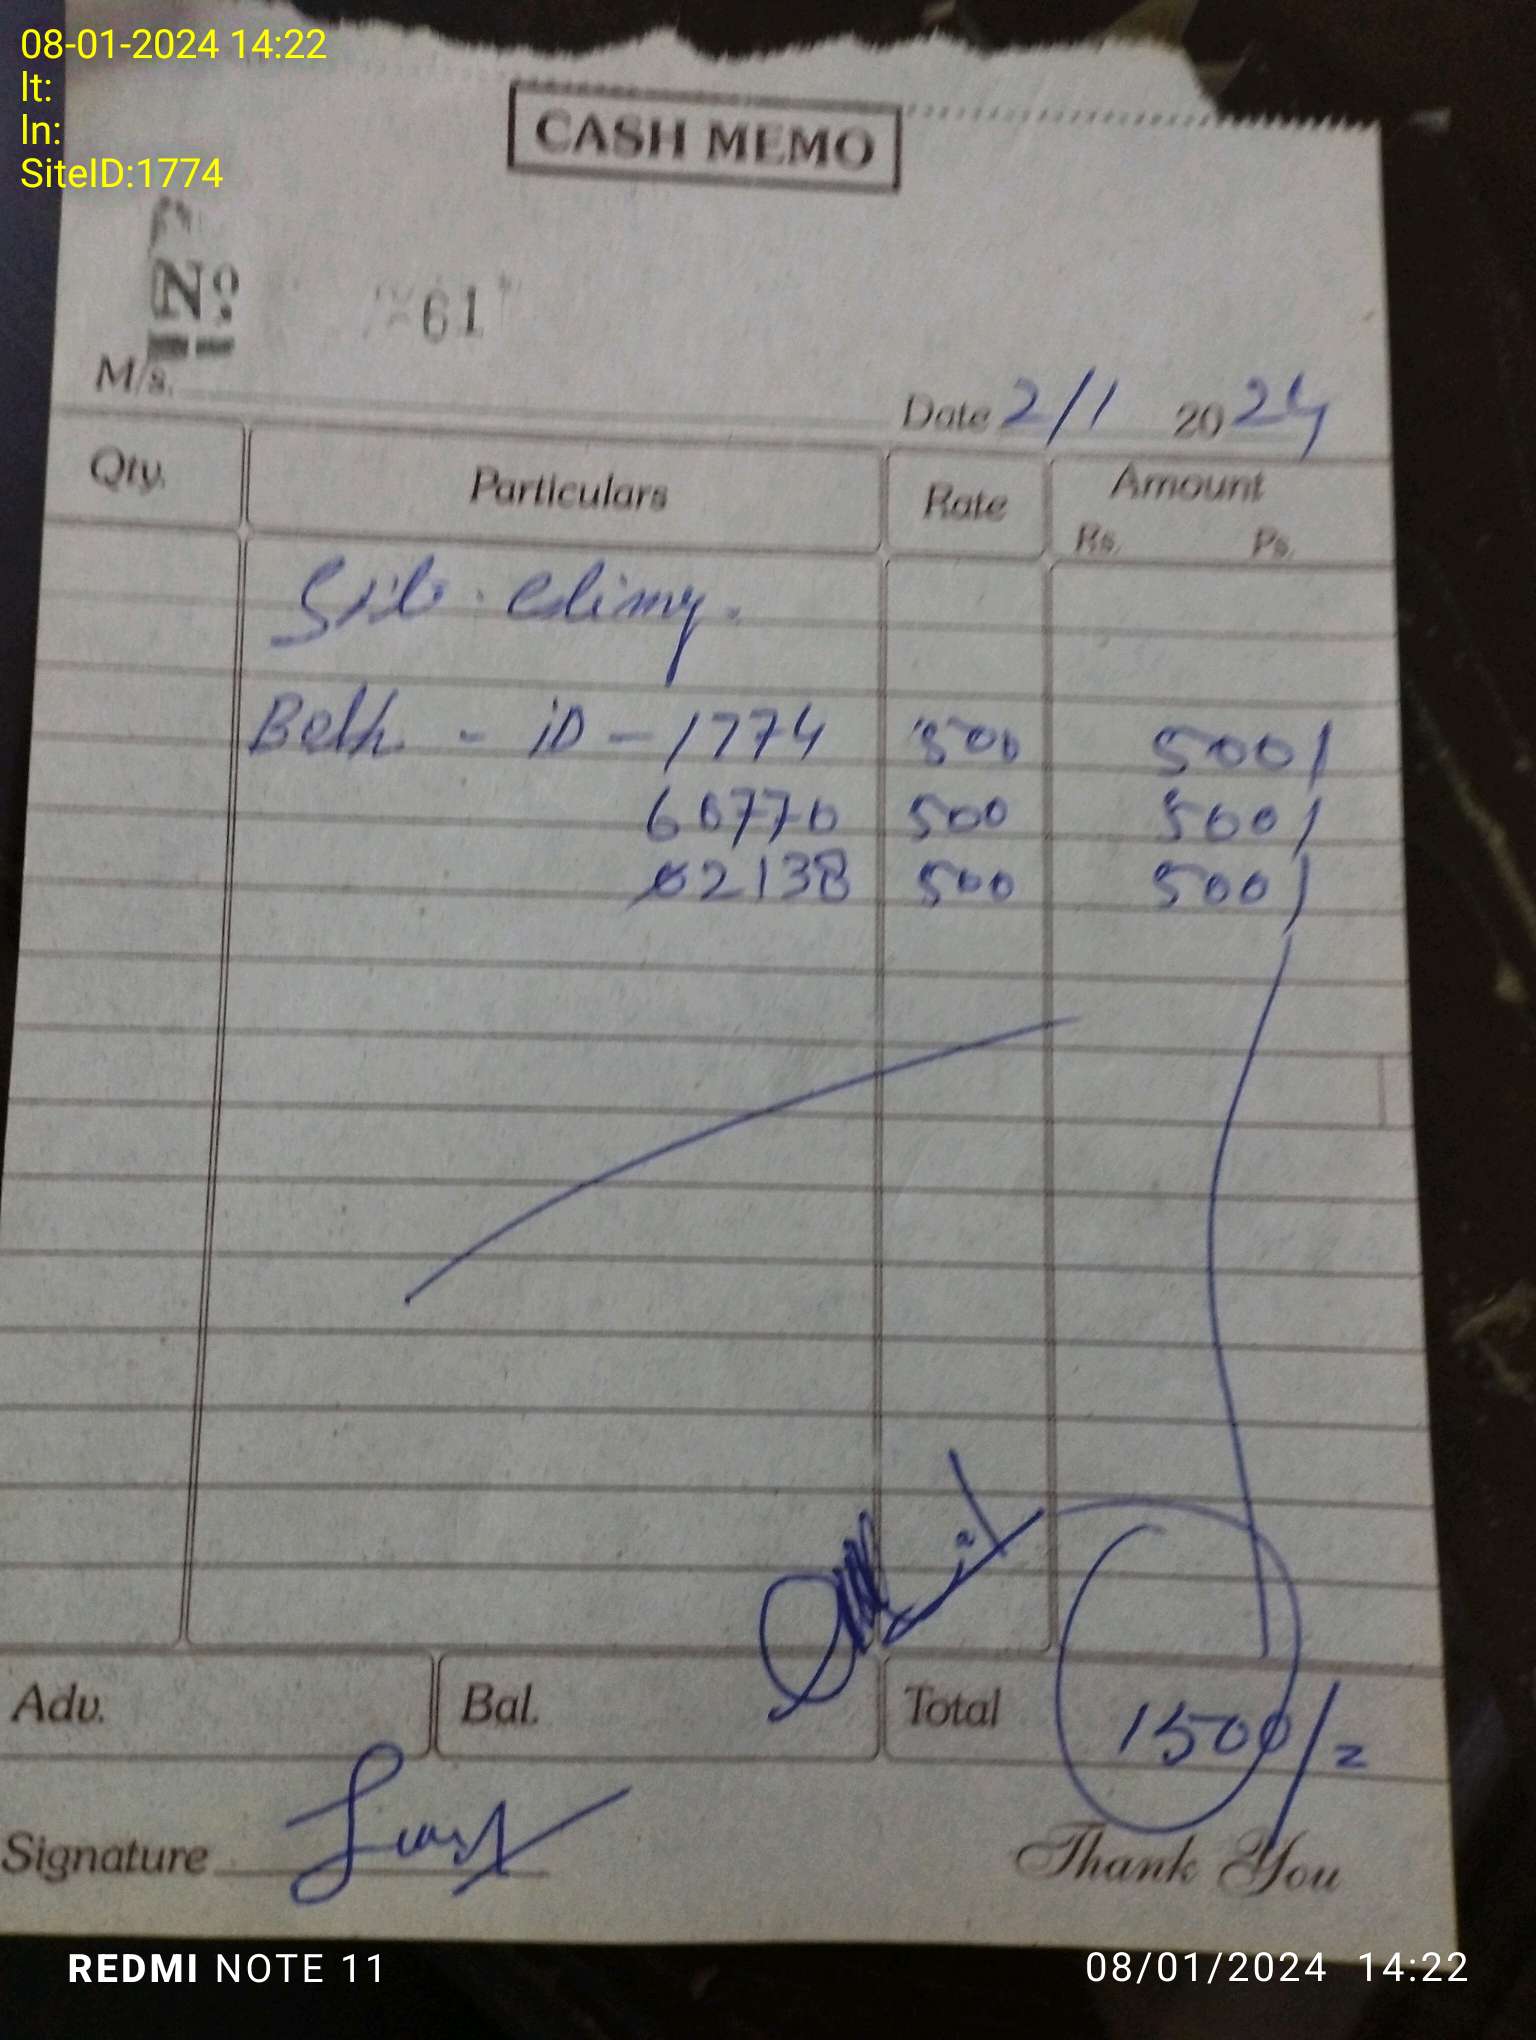 08-01-2024 14:22
lt:
ln:
SiteID:1774
CASH MEMO
No. 61
M/s. Date 2/1 2024
Qty. Particulars Rate Amount
Rs. Ps.
- iD - 1774 500 500/
60770 500 500/
02138 500 500/
Adv. Bal. Total 1500/=
Signature
Thank You
REDMI NOTE 11 08/01/2024 14:22